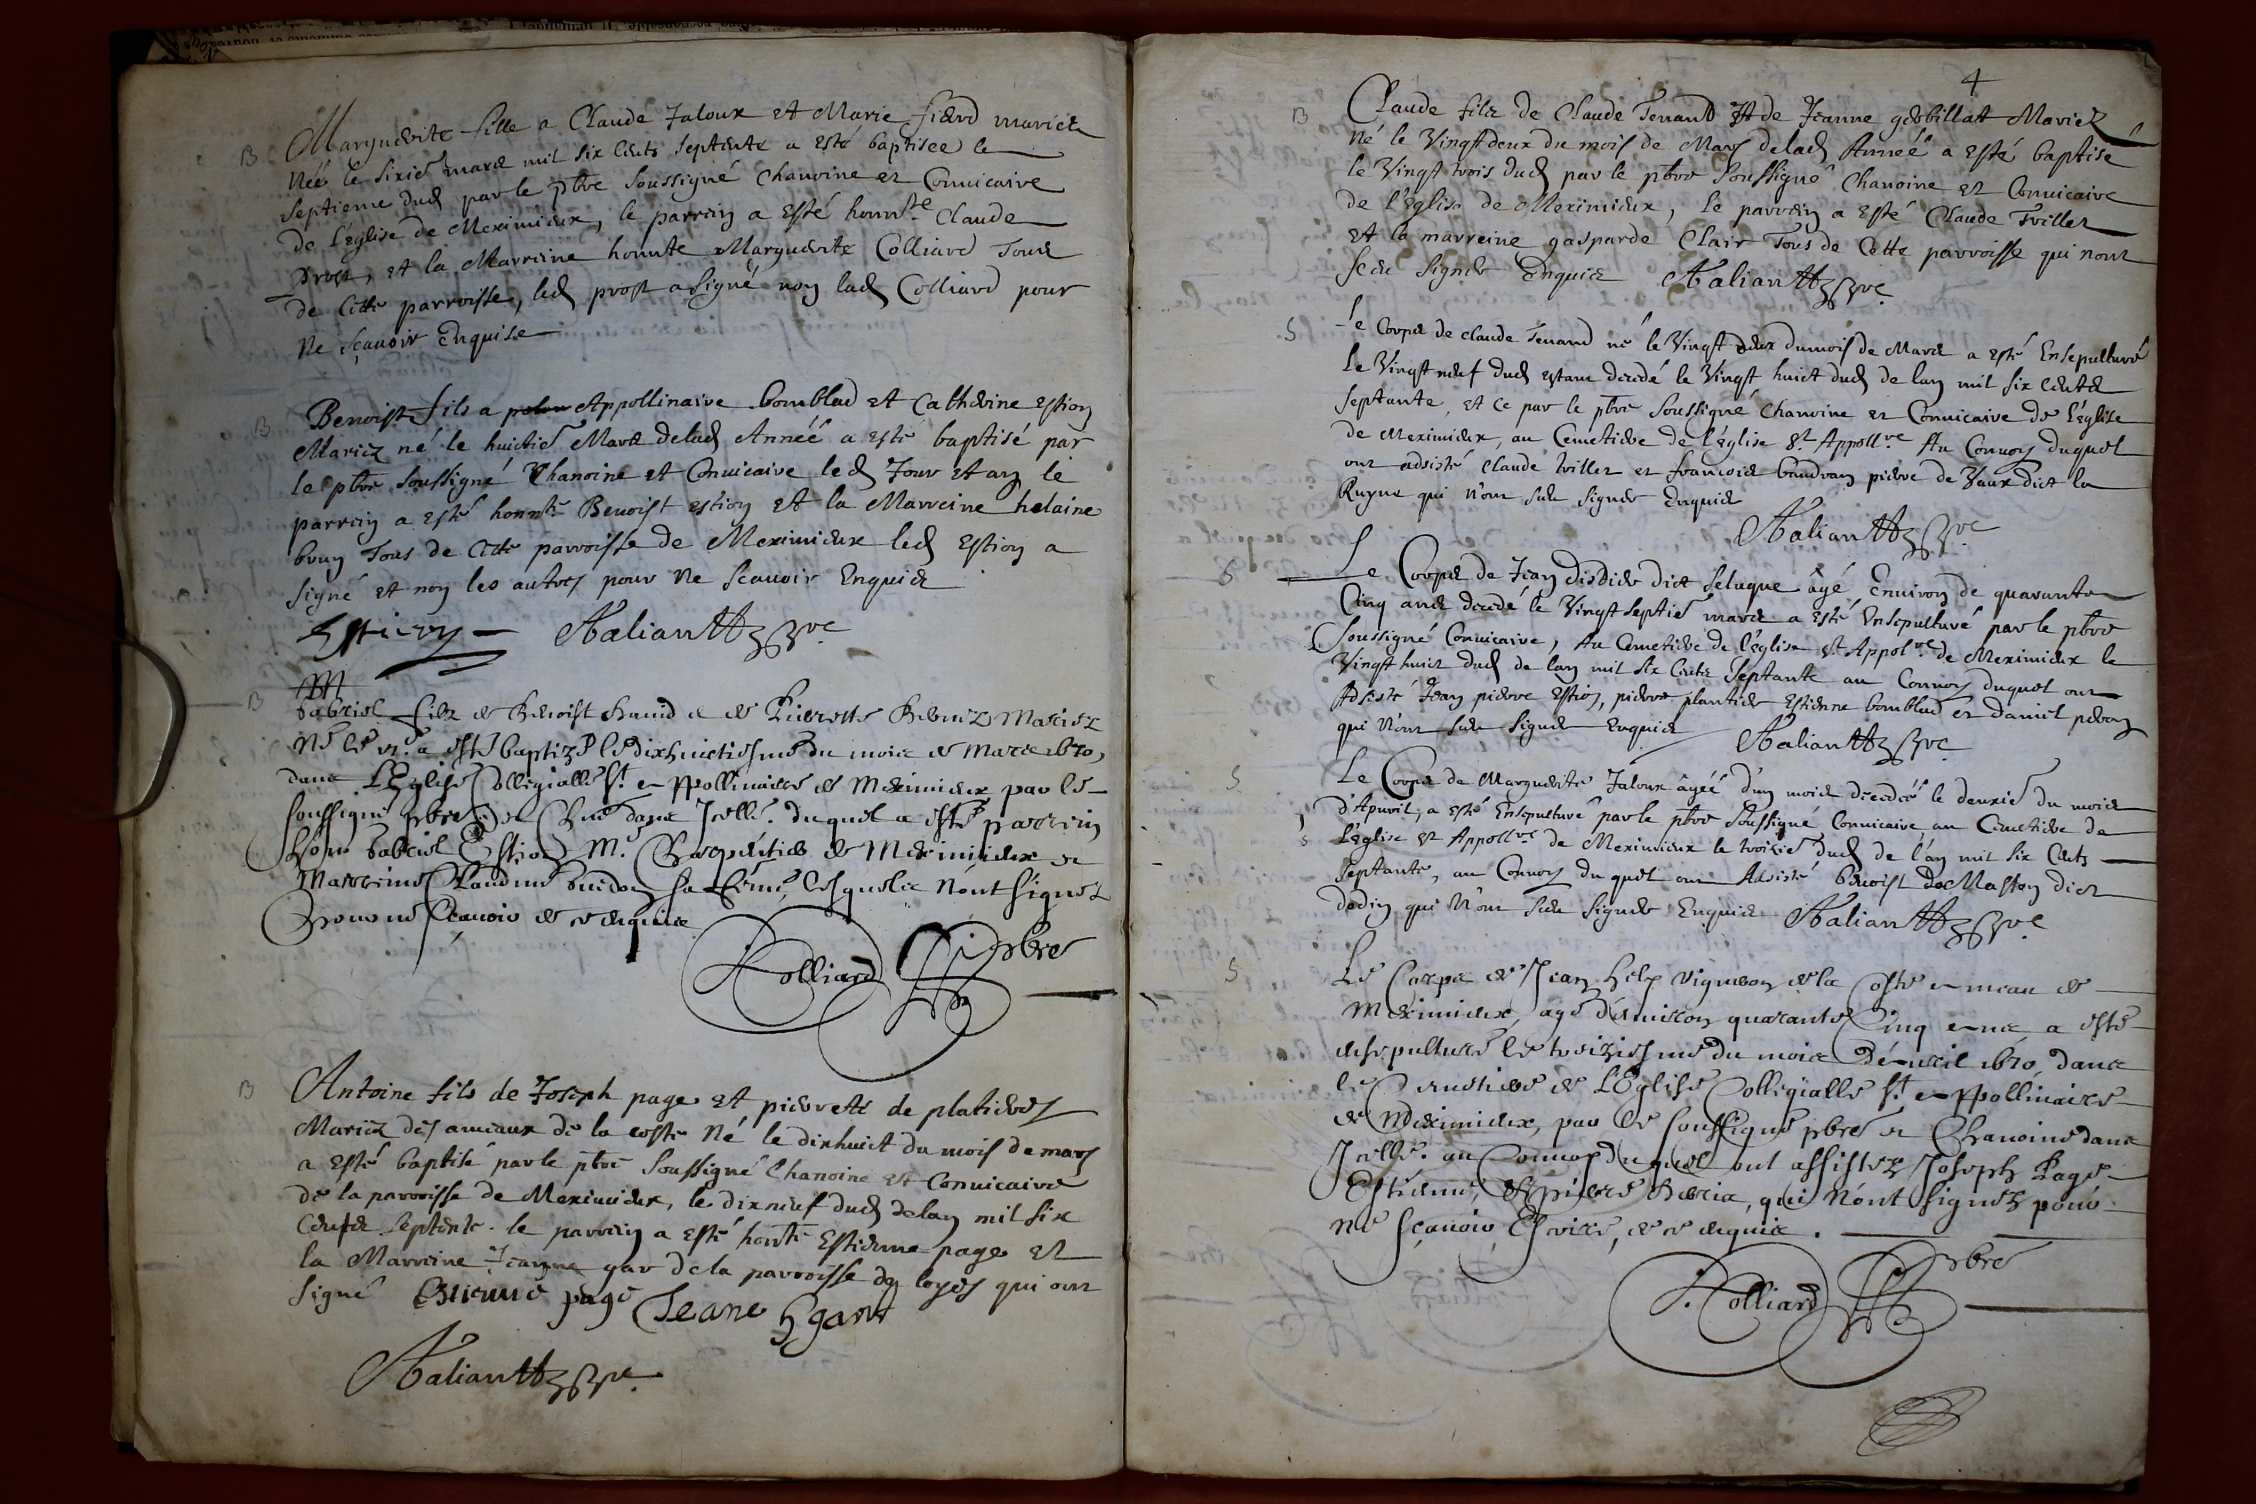 B Marguerite fille a Claude Jaloux et Marie fierd mariez
Née le sixie mars mil six cents septente a esté baptisee le
septieme dud par le pbre soussigné chanoine et Conuicaire
de l'eglise de Meximieux, le parrain a esté honnste Claude
prost, et la Marreine honnte Marguerite Colliard Tous
de cette parroisse, led prost a signé non lad Colliard pour
ne sçauoir Enquise
B Benoist fils a Appollinaire bombled et Catherine Estion
Mariez né le huictie Mars delad Année a esté baptisé par
le pbre soussigné Chanoine et Conuicaire led Jour et an le
parrain a esté honnte Benoist estion et la Marreine helaine
brun Tous de cette parroisse de Meximieux led Estion a
signé et non les autres pour ne scauoir Enquis
Estion
B M
Gabriel filz de Benoist et de Pierrette Mariez
né le a esté baptizé le dixhuictiesme du mois de Mars 1670,
dans L'Eglise Collegialle St Appollinaire de Meximieux par le
soussigné pbre et dans Icelle. duquel a esté parrein
honn Gabriel Estion M. Charpentier de Meximieux et
Marreine Claudine sa femme, lesquels n'ont signez
pour ne sçauoir de ce enquis
Colliard pbre
B Antoine fils de Joseph page et pierrette de platieres
Mariez des ameaux de la coste Né le dixhuict du mois de mars
a esté baptisé par le pbre soussigné Chanoine et Conuicaire
de la parroisse de Meximieux, le dixneuf dud de lan mil six
cents septente. le parrain a esté honte Estienne page et
la Marreine Jeanne gar de la parroisse de loyes qui ont
signé Estienne page Jeane gar
4
B Claude filz de Claude Tenand Et de Jeanne gerbillat Mariez
né le Vingt deux du mois de Mars delad Année a esté baptisé
le Vingt trois dud par le pbre soussigné Chanoine et Conuicaire
de l'Eglise de Meximieux, le parrein a esté Claude Triller
et la marreine gasparde Clair Tous de Cette parroisse qui n'ont
sceu signer Enquis
S Le corps de claude Tenand né le Vingt deux du mois de Mars a esté Ensepulturé
le Vingt neuf dud estant decedé le Vingt huict dud de lan mil six cents
septante, et ce par le pbre soussigné Chanoine et Conuicaire de l'Eglise
de Meximieux, au Cemetiere de l'eglise St Appollre Au Conuoy duquel
ont adsisté claude triller et francois baudran pierre de Vaux dict la
Ruyne qui n'ont sceu signer Enquis
S Le Corps de Jean disdier dict selaque agé, Enuiron de quarante
Cinq ans decedé le Vingt septie mars a esté Ensepulturé par le pbre
soussigné Conuicaire, Au Cemetiere de l'eglise St Appolre de Meximieux le
Vingt huict dud de lan mil six cents septante au Conuoy duquel ont
Adsisté Jean pierre Estion, pierre plantier Estienne bombled et daniel peron
qui n'ont sceu signer Enquis
S Le Corps de Marguerite Jaloux agée d'un mois decedée le deuxie du mois
d'Apuril, a esté Ensepulturé par le pbre soussigné Conuicaire, au Cemetiere de
L'eglise St Appollre de Meximieux le troisie dud de l'an mil six Cents
septante, au Conuoy duquel ont Adsisté benoist de Maston dict
dodin qui n'ont sceu signer Enquis
S Le Corps de Jean vigneron de la Coste de
Meximieux, agé d'enuiron quarante Cinq a esté
ensepulturé le treiziesme du mois d'Auril 1670, dans
le Cemetiere de L'Eglise Collegialle St Appollinaire
de Meximieux, par le soussigné pbre et Chanoine dans
Icelle. au Conuoy duquel ont assistez Joseph Page
Estienne, et pierre qui n'ont signez pour
ne sçauoir Escrire, de ce enquis.
Colliard pbre